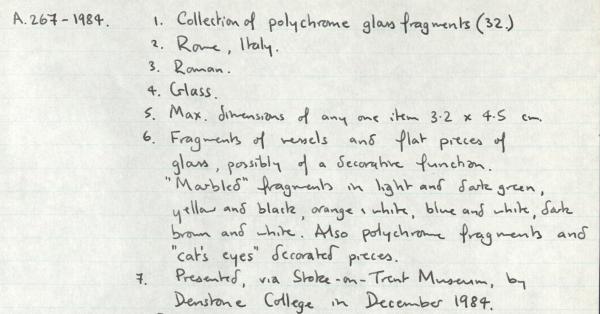 A.267-1984. 1. Collection of polychrome glass fragments (32.)
2. Rome, Italy.
3. Roman.
4. Glass.
5. Max. dimensions of any one item 3.2 x 4.5 cm.
6. Fragments of vessels and flat pieces of
glass, possibly of a decorative function.
"Marbled" fragments in light and dark green,
yellow and black, orange & white, blue and white, dark
brown and white. Also polychrome fragments and
"cat's eyes" decorated pieces.
7. Presented, via Stoke-on-Trent Museum, by
Denstone College in December 1984.